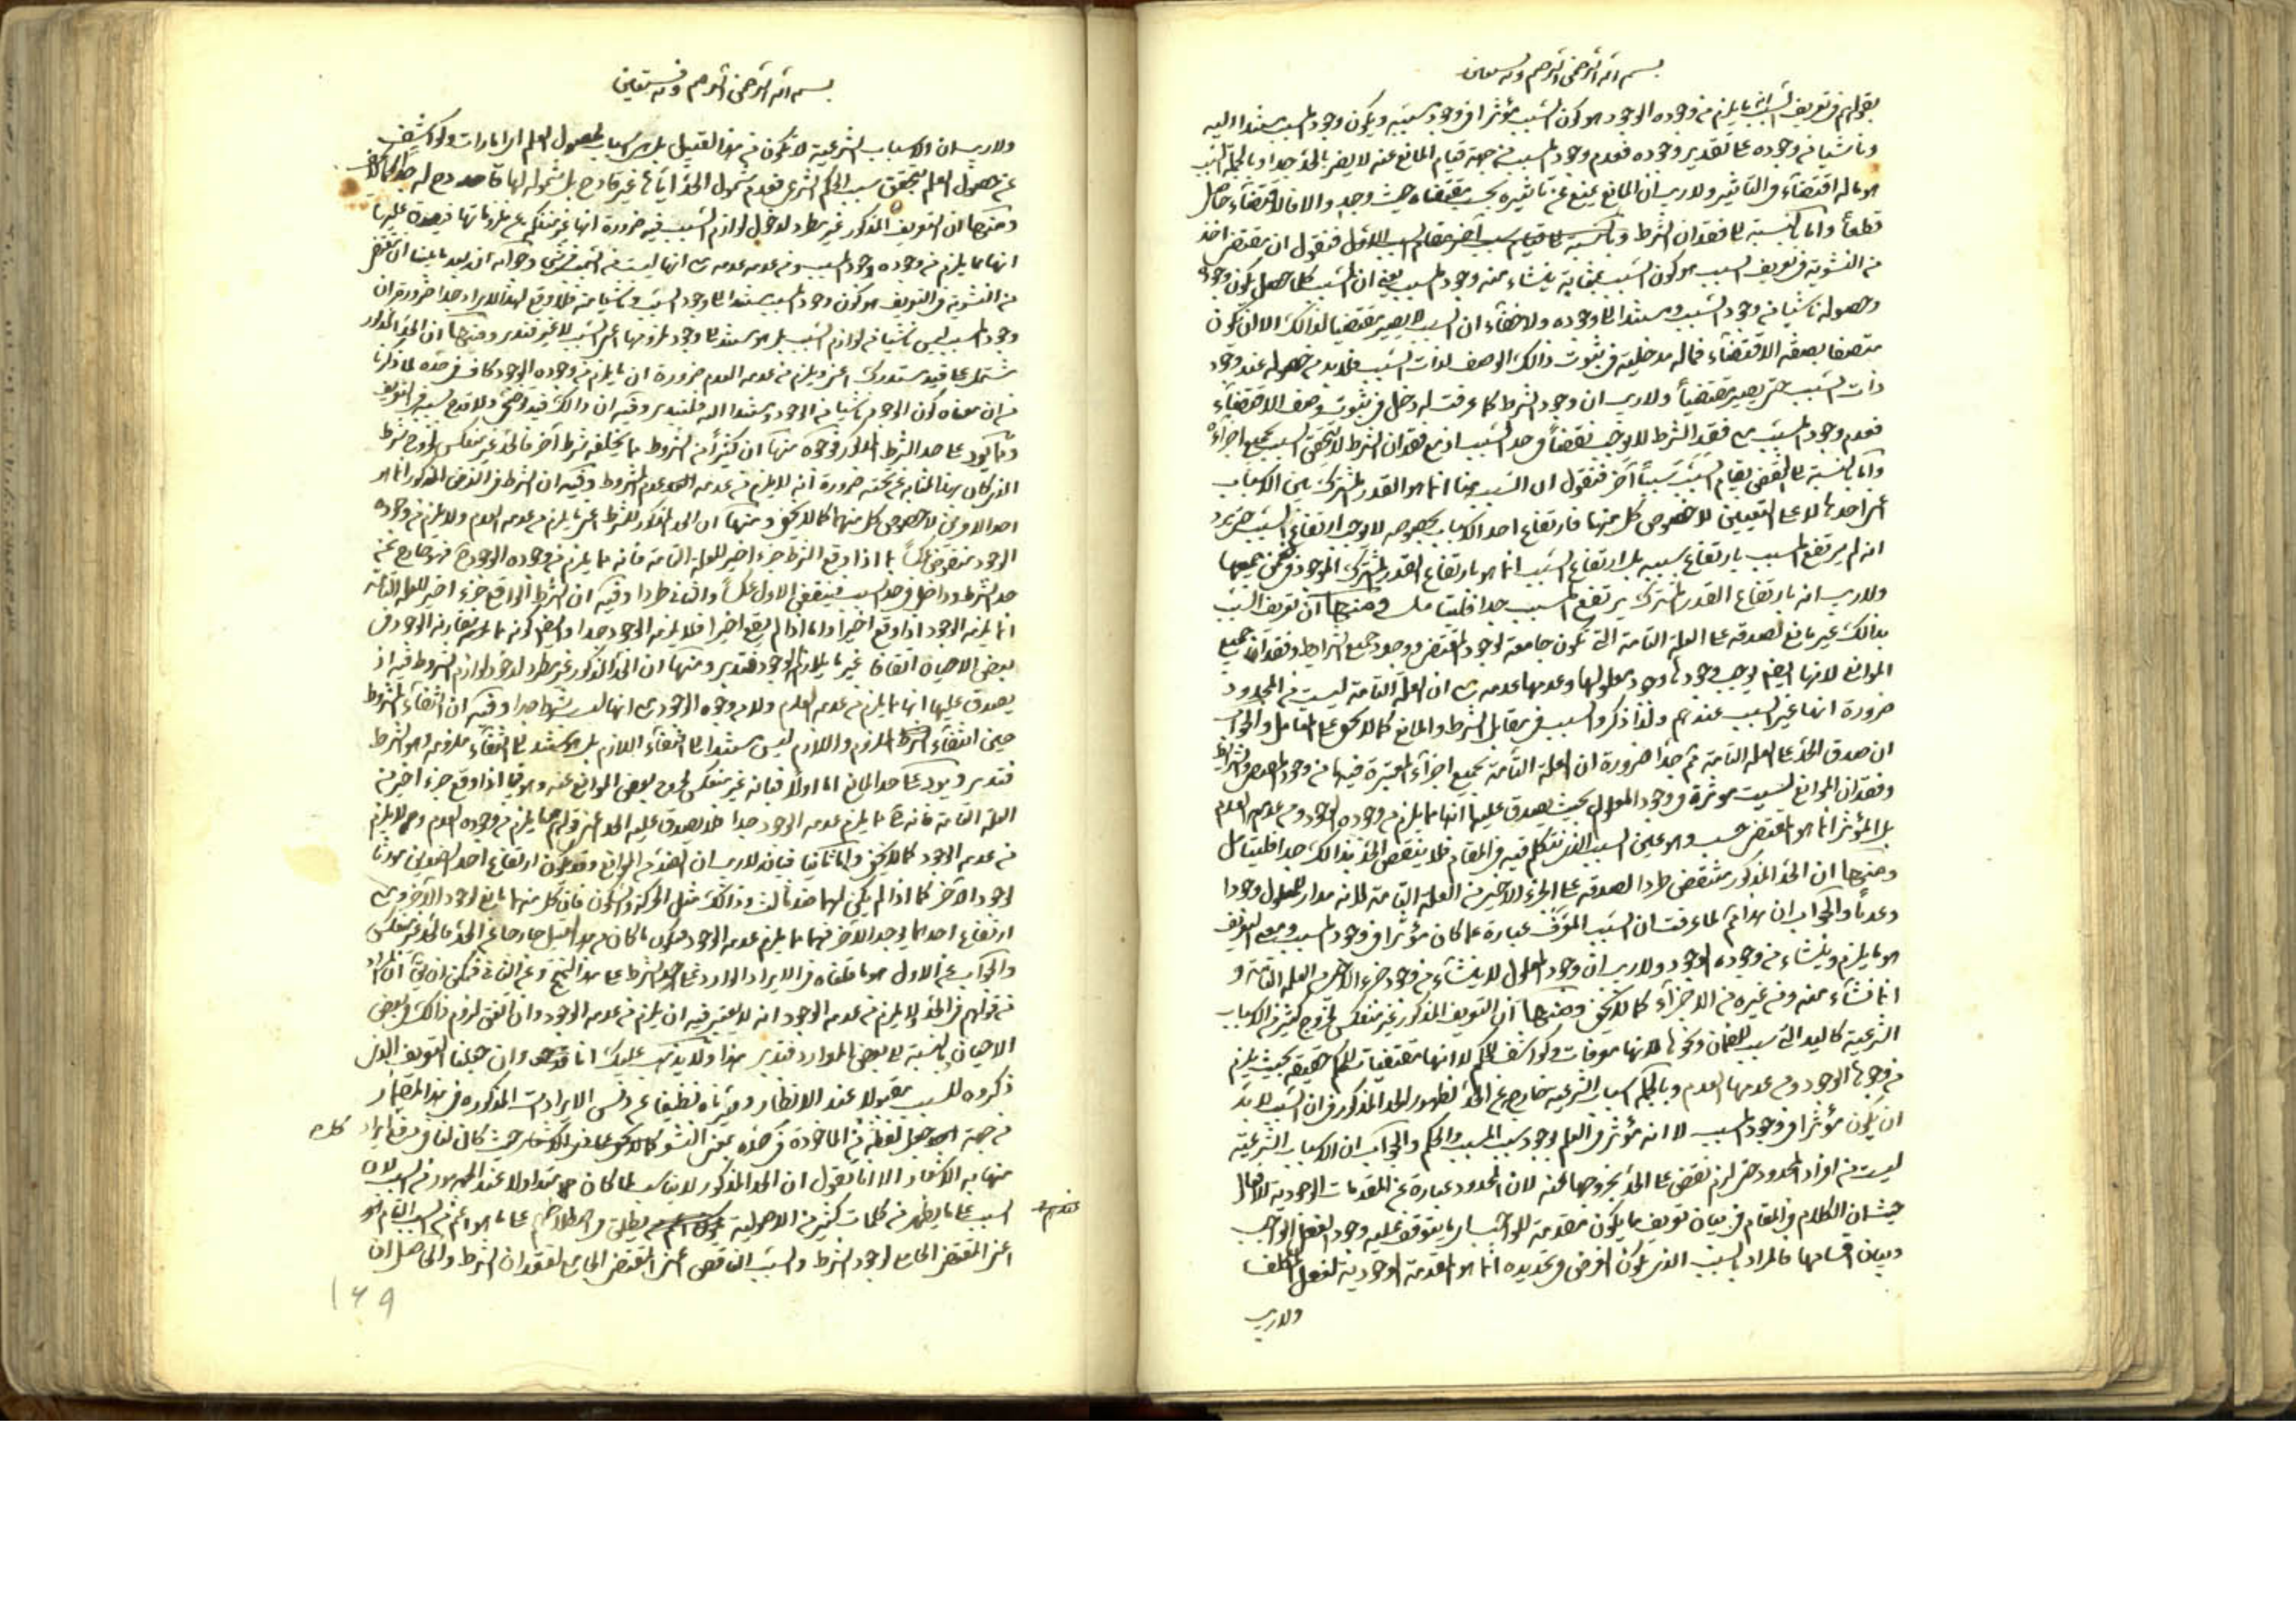 بسم الله الرحمن الرحيم وبه نستعين
بقولهم في تعريف السبب انه ما يلزم من وجوده الوجود هو كون السبب مؤثرا في وجود مسببه ويكون وجود المسبب مستندا اليه
وناشيا من وجوده على تقدير وجوده فعدم وجود المسبب من جهة قيام المانع عنه لا يضر بالحد جدا وبالجملة السبب
هو ما له اقتضاء في التاثير ولا ريب ان المانع يمنع عن تاثيره بحسب مقتضاه حيث وجد والا فالاقتضاء حاصل
قطعا واما بالنسبة الى فقدان الشرط فنقول ان مقتضى اخذ
من النشوية في تعريف السبب هو كون السبب بمثابة ينشاء منه وجود المسبب يعني ان السبب كلما حصل يكون وجود
وحصوله ناشيا من وجود السبب ومستندا الى وجوده ولا خفاء ان السبب لا يصير مقتضيا لذلك الا ان يكون
متصفا بصفة الاقتضاء فما له مدخلية في ثبوت ذالك الوصف لذات السبب فلا بد من حصوله عند وجود
ذات السبب حتى يصير مقتضيا ولا ريب ان وجود الشرط كما عرفت له دخل في ثبوت وصف الاقتضاء
فعدم وجود المسبب مع فقد الشرط لا يوجب نقضا في حد السبب اذ مع فقدان الشرط لا يتحقق السبب بجميع اجزاءه
واما بالنسبة الى النقض بقيام السبب سببا آخر فنقول ان السبب هنا انما هو القدر المشترك بين الاسباب
اعني احدها لا على التعيين لا خصوص كل منها فارتفاع احد الاسباب بخصوصه لا يوجب ارتفاع السبب حتى يرد
انه لم يرتفع المسبب بارتفاع سببه بل ارتفاع السبب انما هو بارتفاع القدر المشترك الموجود في ضمن جميعها
ولا ريب انه بارتفاع القدر المشترك يرتفع المسبب جدا فليتامل ومنها ان تعريف السبب
بذالك غير مانع لصدقه على العلة التامة التي تكون جامعة لوجود المقتضي ووجود جميع الشرايط وفقدان جميع
الموانع لانها ايضا يوجب وجودها وجود معلولها وعدمها عدمه مع ان العلة التامة ليست من المحدود
ضرورة انها غير السبب عندهم ولذا ذكروا السبب في مقابل الشرط والمانع كما لا يخفى على المتامل والجواب
ان صدق الحد على العلة التامة ثم جدا ضرورة ان العلة التامة بجميع اجزاء المعتبرة فيها من وجود المقتضي والشرايط
وفقدان الموانع ليست مؤثرة في وجود المعلول بحيث يصدق عليها انها ما يلزم من وجوده الوجود ومن عدمه العدم
بل المؤثر انما هو المقتضي حسب وهو عين السبب الذي نتكلم فيه في المقام فلا ينتقض الحد بذالك جدا فليتامل
ومنها ان الحد المذكور منتقض طردا لصدقه على الجزء الاخير من العلة التامة لانه مدار المعلول وجودا
وعدما والجواب ان هذا ثم لما عرفت ان السبب المعرف عبارة عما كان مؤثرا في وجود المسبب ومعنى التعريف
هو ما يلزم وينشاء من وجوده الوجود ولا ريب ان وجود المعلول لا ينشاء من وجود جزء الاخير من العلة التامة و
انما نشاء منه ومن غيره من الاجزاء كما لا يخفى ومنها ان التعريف المذكور غير منعكس لخروج كثير من الاسباب
الشرعية كاليد التي سبب للضمان ونحوها لانها معرفات وكواشف للحكم لا انها مقتضيات للحكم حقيقة بحيث يلزم
من وجودها الوجود ومن عدمها العدم وبالجملة اسباب الشرعية خارج عن الحد لظهور الحد المذكور في ان السبب لا بد
ان يكون مؤثرا في وجود المسبب لا انه مؤثر في العلم لوجود سبب المسبب والحكم والجواب ان الاسباب الشرعية
ليست من افراد المحدود حتى لزم نقض على الحد بخروجها عنه لان المحدود عبارة عن المقدمات الوجودية للافعال
حيث ان الكلام في المقام في بيان تعريف ما يكون مقدمة للواجب اي ما يتوقف عليه وجود الفعل الواجب
وبيان اقسامها فالمراد بالسبب الذي يكون الغرض في تحديده انما هو المقدمة الوجودية لفعل المكلف
ولا ريب
بسم الله الرحمن الرحيم وبه نستعين
ولا ريب ان الاسباب الشرعية لا تكون من هذا القبيل بل هي اسباب لحصول العلم اي امارات وكواشف
عن حصول العلم بتحقق سبب الحكم الشرعي فعدم شمول الحد اياها غير قادح بل شموله لها قادح له جدا كما لا يخفى
ومنها ان التعريف المذكور غير مطرد لدخول لوازم السبب فيه ضرورة انها غير منفكة عن ملزوماتها فيصدق عليها
انها مما يلزم من وجوده وجود المسبب ومن عدمه عدمه مع انها ليست من السبب في شيء وجوابه انه بعد ما بينا ان مقتضى
من النشوية في التعريف هو كون وجود المسبب مستندا الى وجود السبب وناشيا منه فلا وقع لهذا الايراد جدا ضرورة ان
وجود المسبب ليس ناشيا من لوازم السبب بل هو مستند الى وجود ملزومها اعني السبب لا غير فتدبر ومنها ان الحد المذكور
مشتمل على قيد مستدرك اعني ويلزم من عدمه العدم ضرورة ان ما يلزم من وجوده الوجود كاف في حده لما ذكرنا
من ان معناه كون الوجود ناشيا من الوجود ومستندا اليه فليتدبر وفيه ان ذالك قيد توضيحي ولا قدح بسببه في التعريف
ومما يورد على حد الشرط المذكور فوجوه منها ان كثيرا من الشروط مما يخلفه شرط آخر فالحد غير منعكس لخروج شرط
الذي كان بهذا المثابة عن تحته ضرورة انه لا يلزم من عدمه عدم المشروط وفيه ان الشرط في الفرض المذكور انما هو
احد الامرين لا خصوص كل منهما كما لا يخفى ومنها ان الحد المذكور للشرط اعني ما يلزم من عدمه العدم ولا يلزم من وجوده
الوجود منقوض عكسا بما اذا وقع الشرط جزء اخير للعلة التامة فانه مما يلزم من وجوده الوجود فهو خارج عن
حد الشرط وداخل في حد السبب فينتقض الاول عكسا والثاني طردا وفيه ان الشرط الواقع جزء اخير للعلة التامة
انما يلزمه الوجود اذا وقع اخيرا واما اذا لم يقع اخيرا فلا يلزمه الوجود جدا
بعض الاحيان اتفاقا غير ما يلازم الوجود فتدبر ومنها ان الحد المذكور غير مطرد لدخول لوازم الشروط فيه اذ
يصدق عليها انها مما يلزم من عدمه العدم ولا من وجوده الوجود مع انها ليست بشرط جدا وفيه ان انتفاء المشروط
حين انتفاء اللازم ليس مستندا الى انتفاء اللازم بل هو مستند الى انتفاء ملزومه وهو الشرط
فتدبر ويورد على حد المانع اما اولا فبانه غير منعكس لخروج بعض الموانع عنه وهو فيما اذا وقع جزء اخير من
العلة التامة فانه مما يلزم عدمه الوجود جدا فلا يصدق عليه الحد اعني قولهم ما يلزم من وجوده العدم ولا يلزم
من عدمه الوجود كما لا يخفى واما ثانيا فبانه لا ريب ان الضد من الموانع وقد يكون ارتفاع احد الضدين مورثا
لوجود الآخر كما اذا لم يكن لهما ضد ثالث وذالك مثل الحركة والسكون فان كل منهما مانع لوجود الآخر ومع
ارتفاع احدهما يوجد الآخر فهما مما يلزم عدمه الوجود فيكون ما كان من هذا القبيل خارجا عن الحد فالحد غير منعكس
والجواب عن الاول هو ما قلناه في الايراد الوارد على حد الشرط على هذا النهج وعن الثاني فيمكن ان يق ان المراد
من قولهم في الحد ولا يلزم من عدمه الوجود انه لا يعتبر فيه ان يلزم من عدمه الوجود وان اتفق لزوم ذالك في بعض
الاحيان بالنسبة الى بعض الموارد فتدبر هذا ولا يذهب عليك انا وان جعلنا التعريف الذي
ذكروه للسبب مقبولا عند الانظار وميزناه نظيفا عن دنس الايرادات المذكورة في هذا المضمار
من جهة جعل لفظة من الماخوذة في حده بمعنى النشو كان لنا في دفع ايراد كلمة
منها به الاكتفاء الا انا نقول ان الحد المذكور لا يناسب لما كان متداولا عند الجمهور من السبب لان
السبب على ما يظهر من كلمات كثير من الاصولية يطلق في اصطلاحهم على ما هو اعم من السبب التام
عندهم
اعني المقتضي الجامع لوجود الشرط والسبب الناقص اعني المقتضي المجامع لفقدان الشرط والحاصل ان
١٤٩